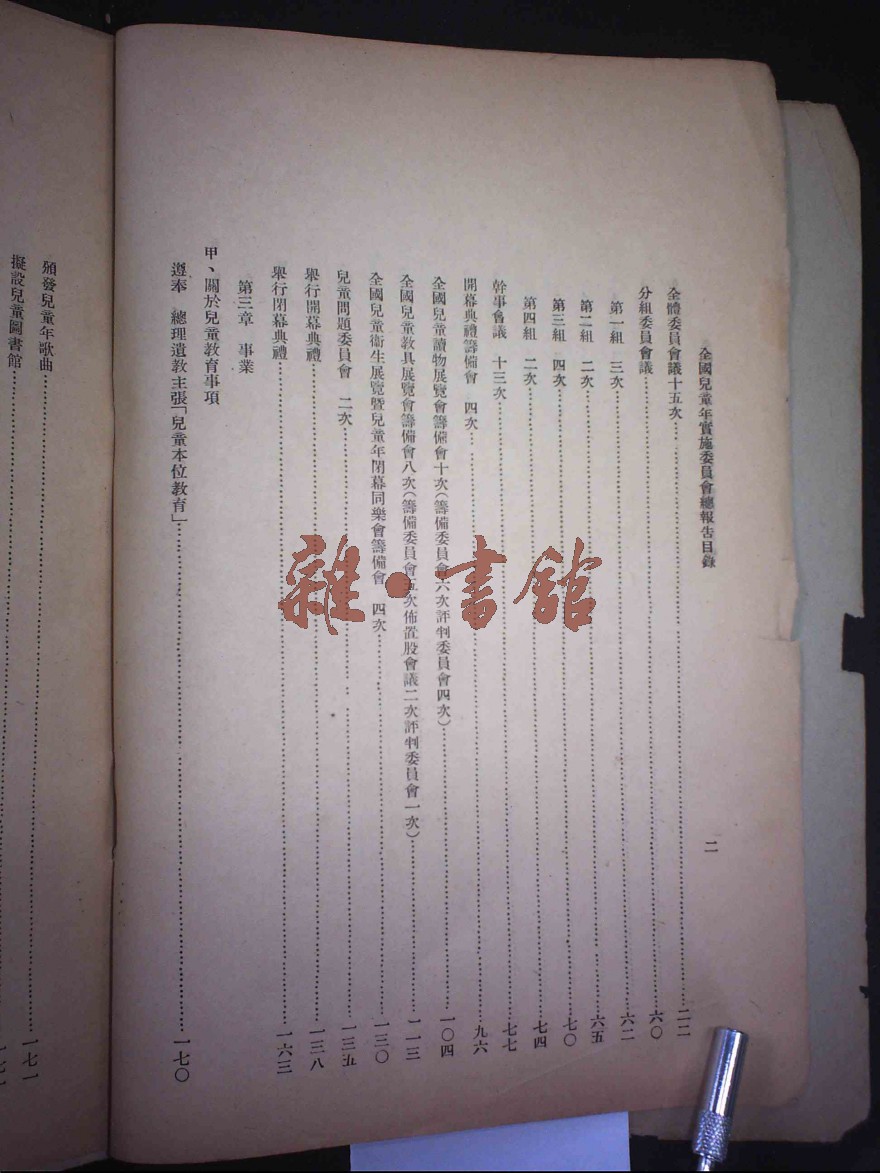 全國兒童年實施委員會總報告目錄
二
全體委員會議十五次……二二
分組委員會議……六〇
第一組 三次……六二
第二組 二次……六五
第三組 四次……七〇
第四組 二次……七四
幹事會議 十三次……七七
開幕典禮籌備會 四次……九六
全國兒童讀物展覽會籌備會十次(籌備委員會六次評判委員會四次)……一〇四
全國兒童教具展覽會籌備會八次(籌備委員會五次佈置股會議二次評判委員會一次)……一一三
全國兒童衞生展覽暨兒童年閉幕同樂會籌備會 四次……一三〇
兒童問題委員會 二次……一三五
舉行開幕典禮……一三八
舉行閉幕典禮……一六三
第三章 事業
甲、關於兒童教育事項
遵奉 總理遺教主張「兒童本位教育」……一七〇
頒發兒童年歌曲……一七一
擬設兒童圖書館……一七一
雜·書館